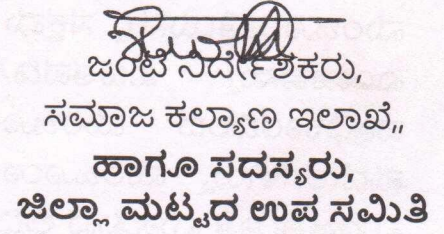 ಜಂಟಿ ನಿರ್ದೇಶಕರು,
ಸಮಾಜ ಕಲ್ಯಾಣ ಇಲಾಖೆ,,
ಹಾಗೂ ಸದಸ್ಯರು,
ಜಿಲ್ಲಾ ಮಟ್ಟದ ಉಪ ಸಮಿತಿ